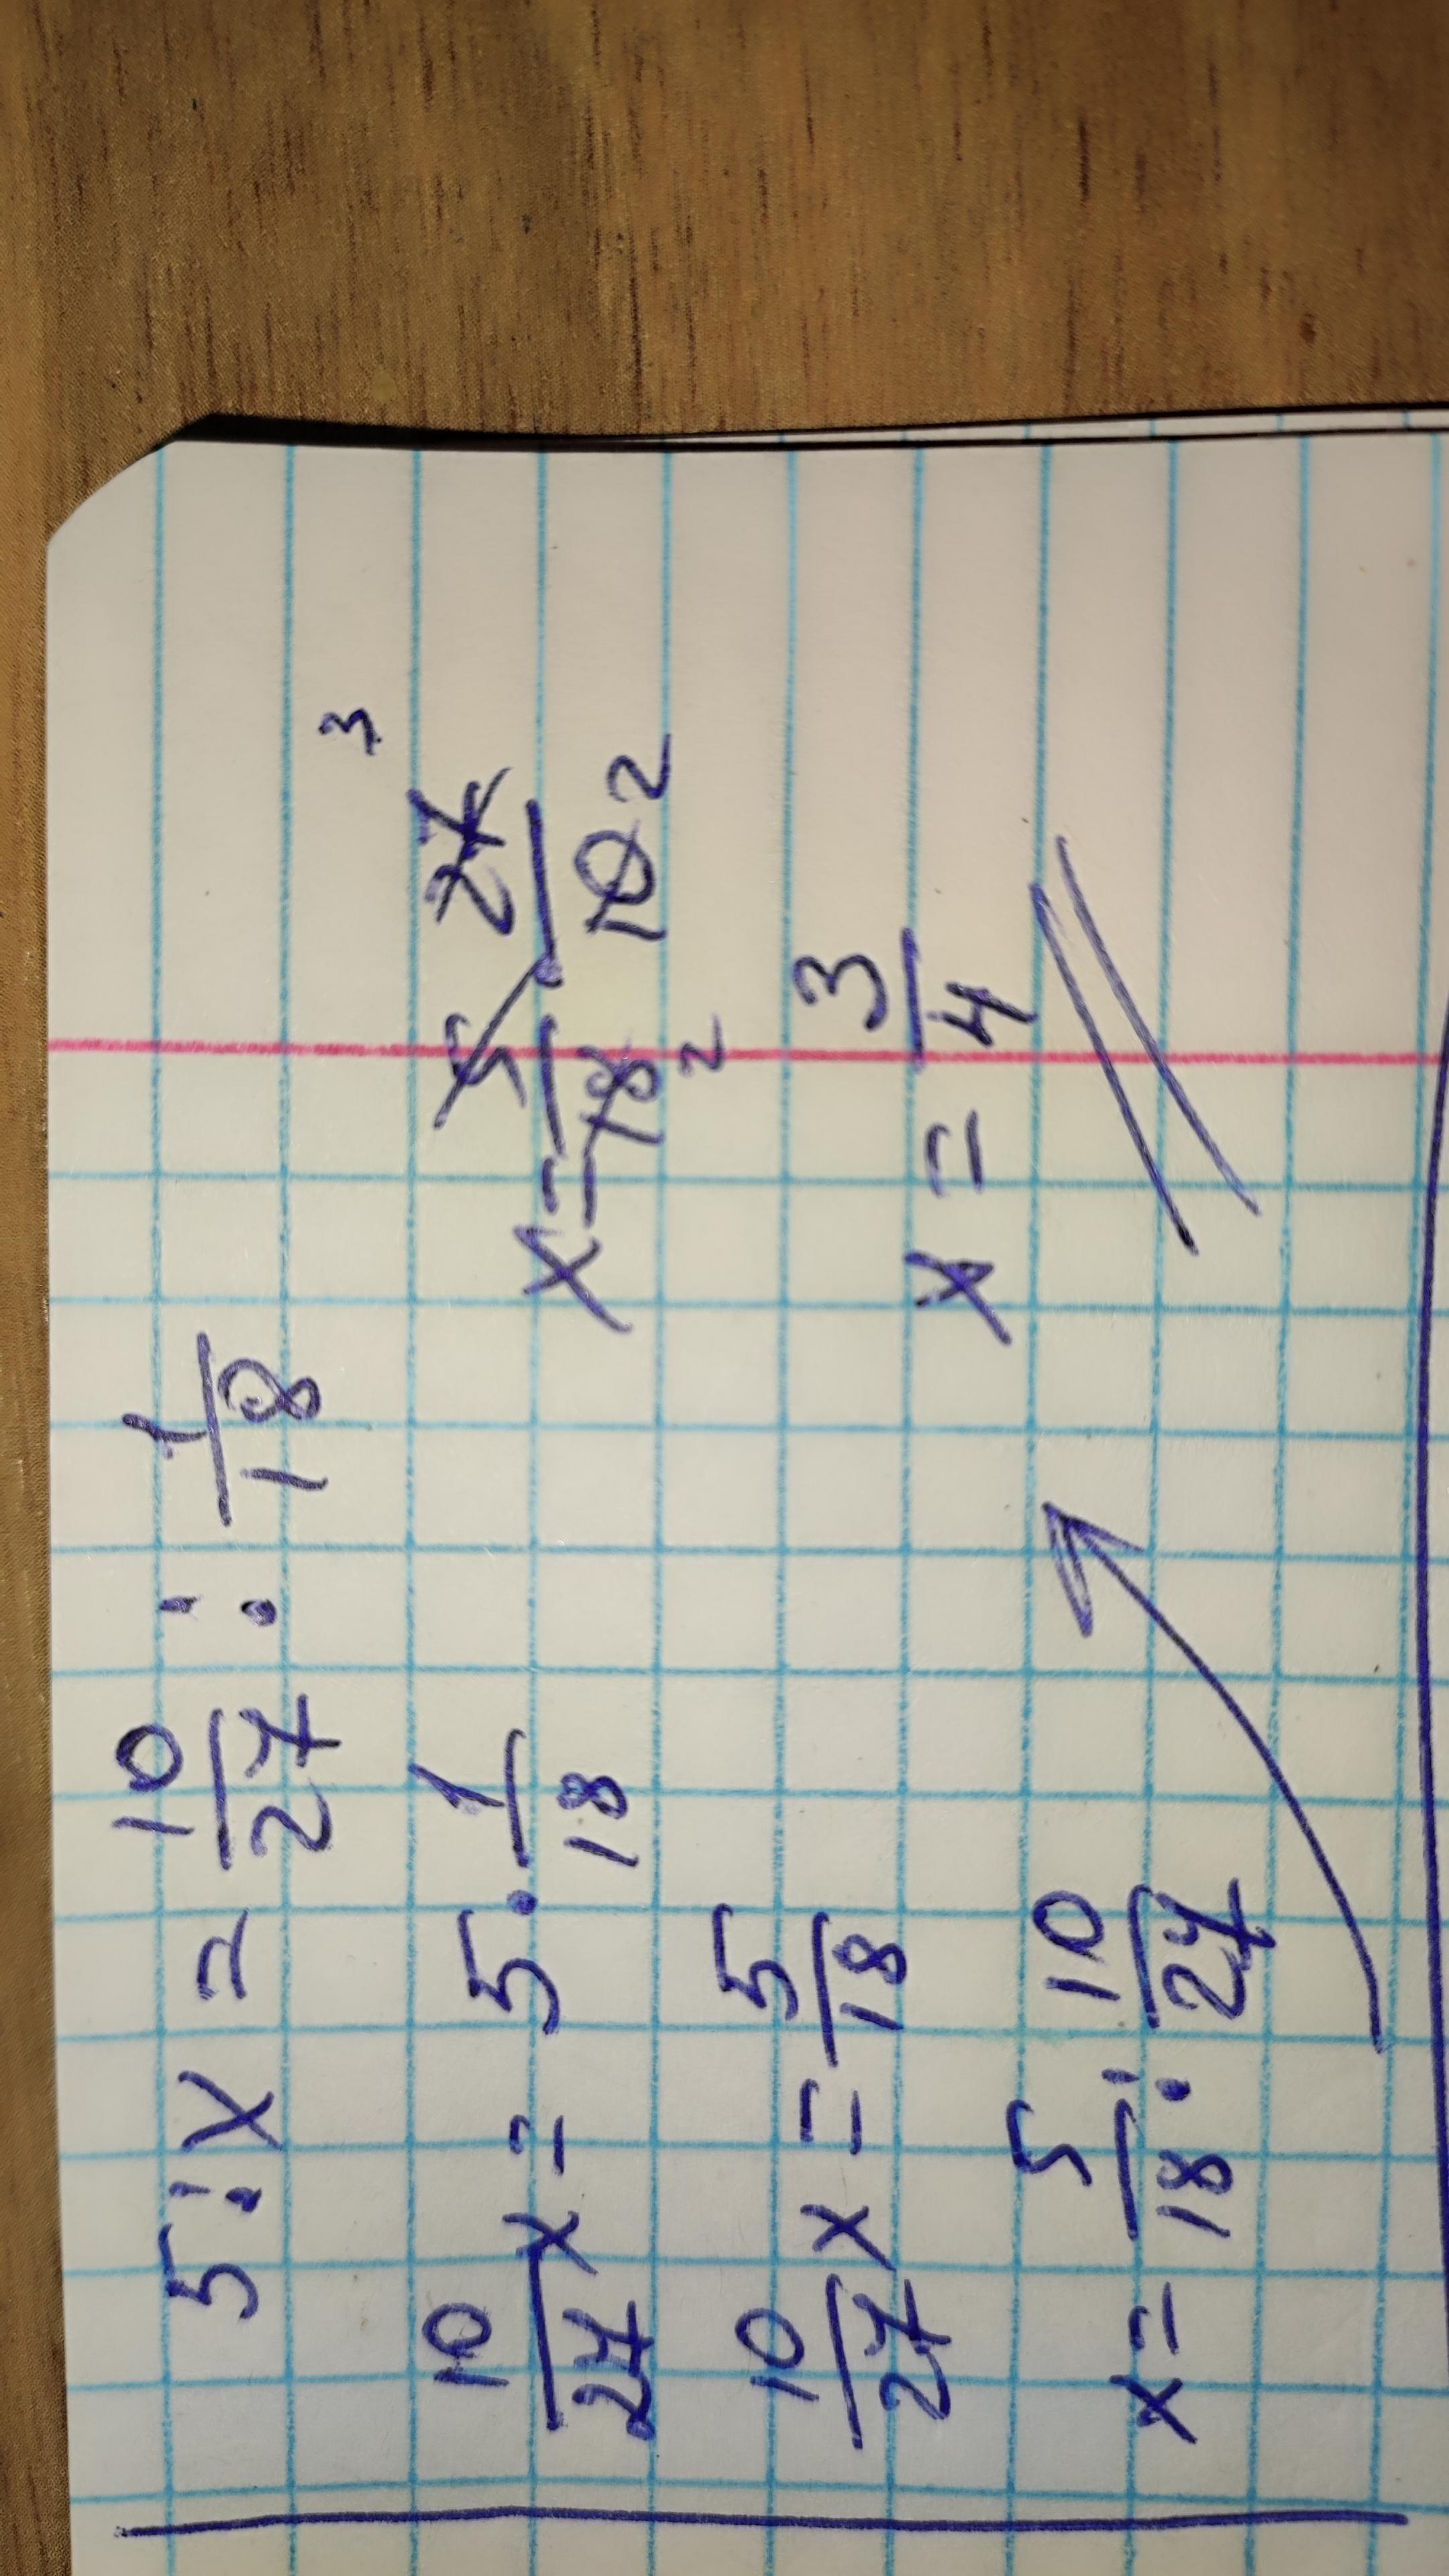 5 : x = 10/27 : 1/18
10/27 x = 5 · 1/18
10/27 x = 5/18
x = 5/18 : 10/27
3
x = 5/18 · 27/10 2
2
x = 3/4